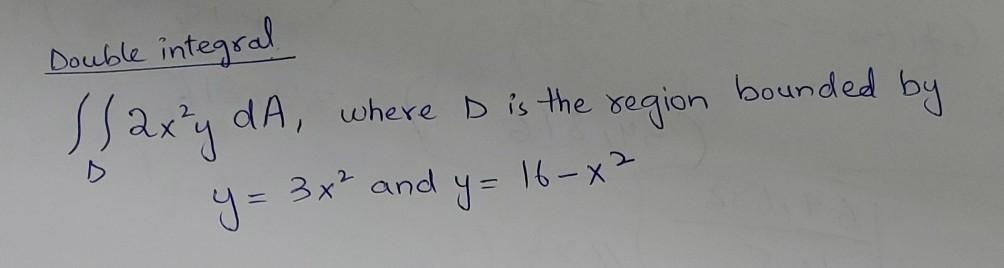 Double integral
∬ 2x²y dA, where D is the region bounded by
D
y = 3x² and y = 16-x²